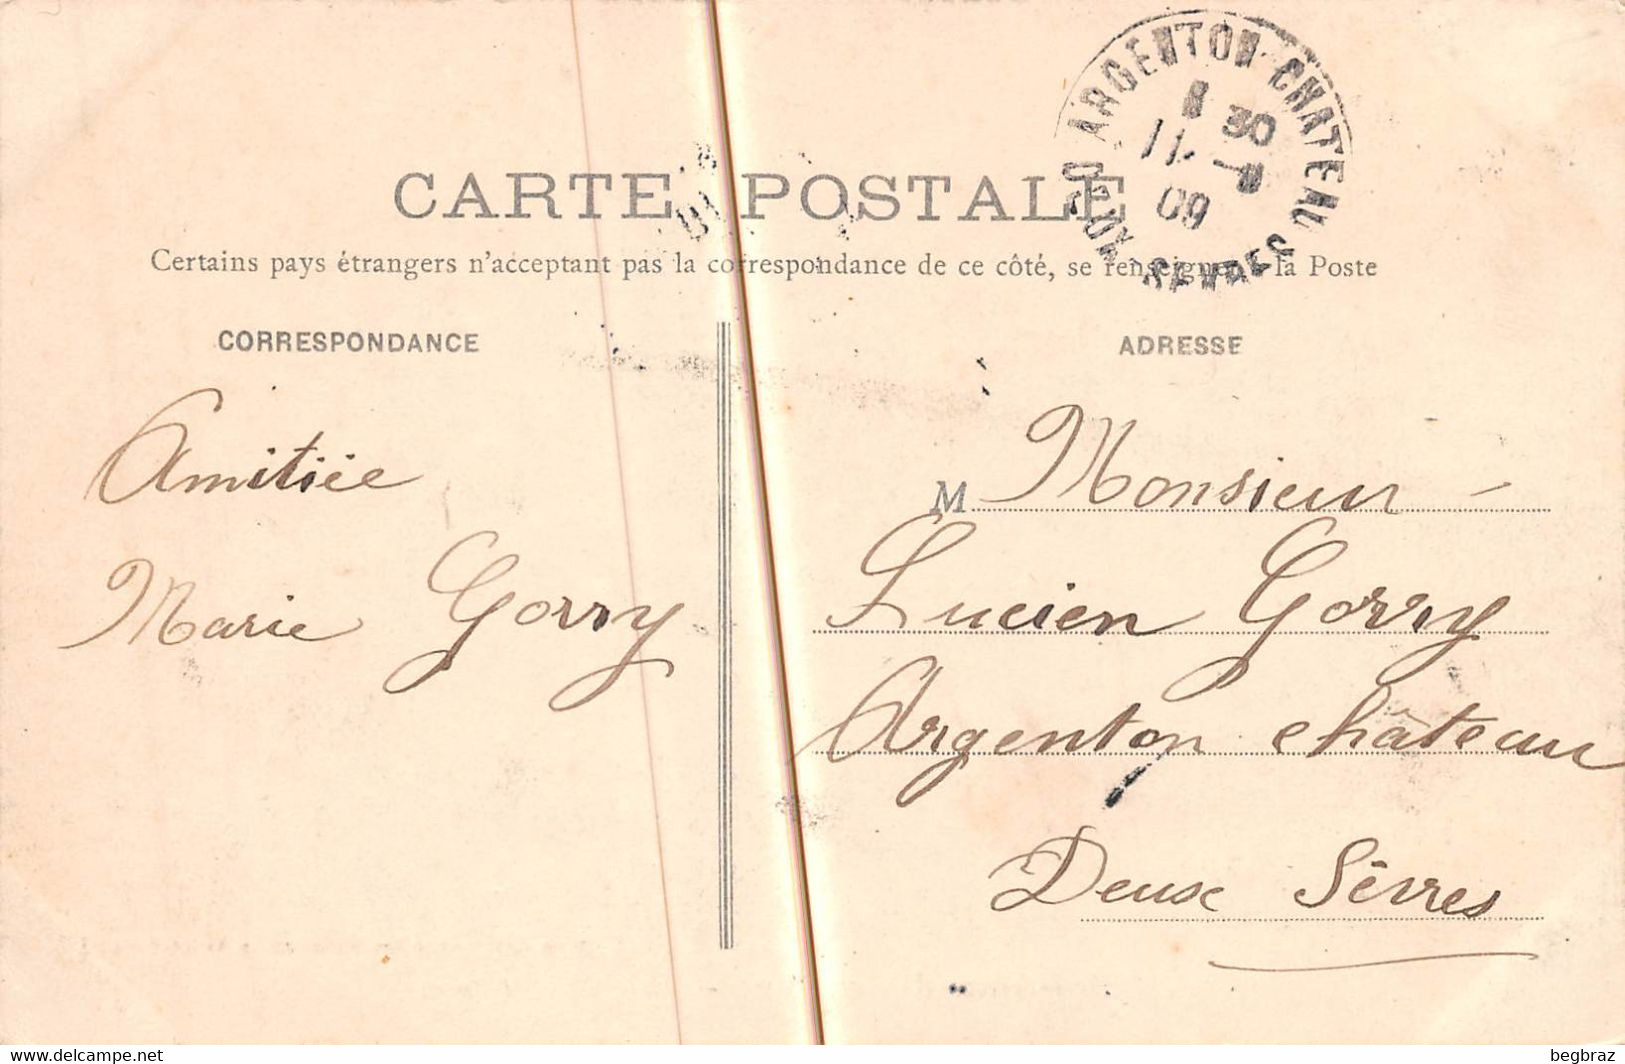 ARGENTON-CHATEAU
30
11
09
DEUX-SEVRES
CARTE POSTALE
Certains pays étrangers n'acceptant pas la correspondance de ce côté, se renseigner à la Poste
CORRESPONDANCE
Amitiée
Marie Gorry
ADRESSE
M Monsieur
Lucien Gorry
Argenton château
Deux Sêvres
www.delcampe.net
begbraz